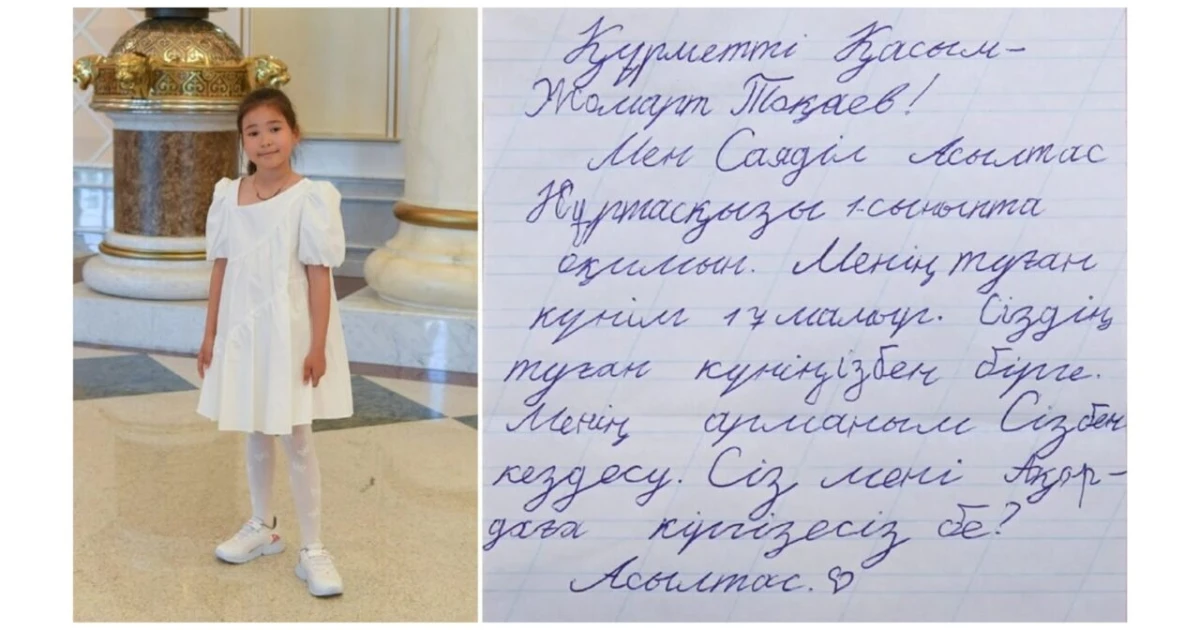 Құрметті Қасым-
Жомарт Тоқаев!
Мен Саяділ Асылтас
Нұртасқызы 1-сыныпта
оқимын. Менің туған
күнім 17 мамыр. Сіздің
туған күніңізбен бірге.
Менің арманым Сізбен
кездесу. Сіз мені Ақор-
даға кіргізесіз бе?
Асылтас.♡